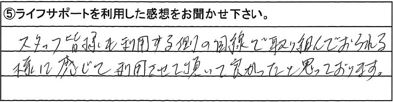 ⑤ライフサポートを利用した感想をお聞かせ下さい。
スタッフ皆様も利用する側の目線で取り組んでおられる
様に感じて利用させて頂いて良かったと思っております。